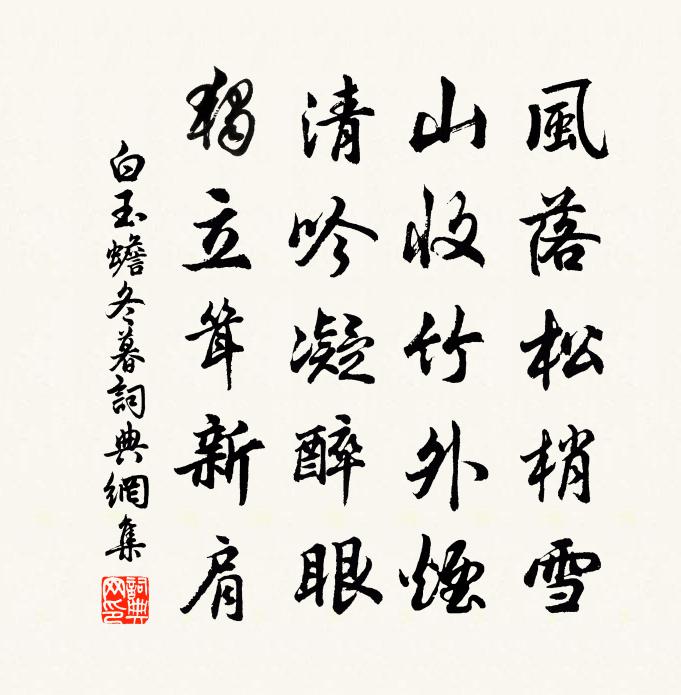 風落松梢雪
山收竹外煙
清吟凝醉眼
獨立聳新肩
白玉蟾冬暮詞典網集
詞典網印